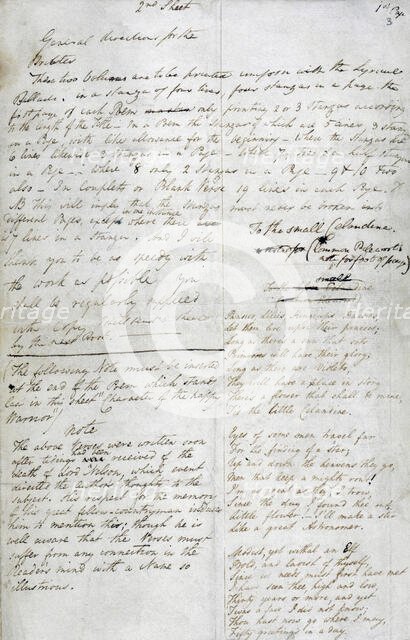 2nd Sheet
1st Page
3
General directions for the
Printer
These two Volumes are to be printed uniform with the Lyrical
Ballads. in a stanza of four lines, four stanzas in a page. the
first page of each Poem only printing 2 or 3 Stanzas according
to the length of the title — in a Poem the Stanzas of which are 5 lines 3 Stan
in a Page with like allowance for the beginning — where the Stanzas are
6 lines likewise 3 in a Page
in a Page — Where 8 only 2 Stanzas in a Page. 9 & 10 two
also — In Couplets or Blank Verse 19 lines in each Page.
NB This will imply that the Stanzas must never be broken into
different Pages, except where there are
7 lines in a Stanza. And I will
intreat you to be as speedy with
the work as possible. You
shall be regularly supplied
with Copy
by the next Post
The following Note must be inserted
at the end of the Poem which stands
last in this Sheet "Character of the happy
Warrior"
Note
The above Verses were written soon
after tidings had been received of the
Death of Lord Nelson, which event
directed the Author's thoughts to the
subject. His respect for the memory
of his great fellow-countryman induces
him to mention this; though he is
well aware that the Verses must
suffer from any connection in the
Readers mind with a Name so
illustrious.
To the small Celandine.
(Common Pilewort
note for foot of page)
small
Celandine
Pansies Lilies Kingcups Daisies
Let them live upon their praises;
Long as there's a sun that sets
Primroses will have their glory;
Long as there are Violets,
They will have a place in story
There's a flower that shall be mine,
Tis the little Celandine.
Eyes of some men travel far
For the finding of a star;
Up and down the heavens they go,
Men that keep a mighty rout!
I'm as great as they, I trow,
Since the day I found thee out
Little flower! I'll make a stir
Like a great Astronomer.
Modest, yet withal an Elf
Bold, and lavish of thyself,
Since we needs must first have met
I have seen thee, high and low,
Thirty years or more, and yet
T'was a face I did not know;
Thou hast now, go where I may,
Fifty greetings in a day.
heritage-images